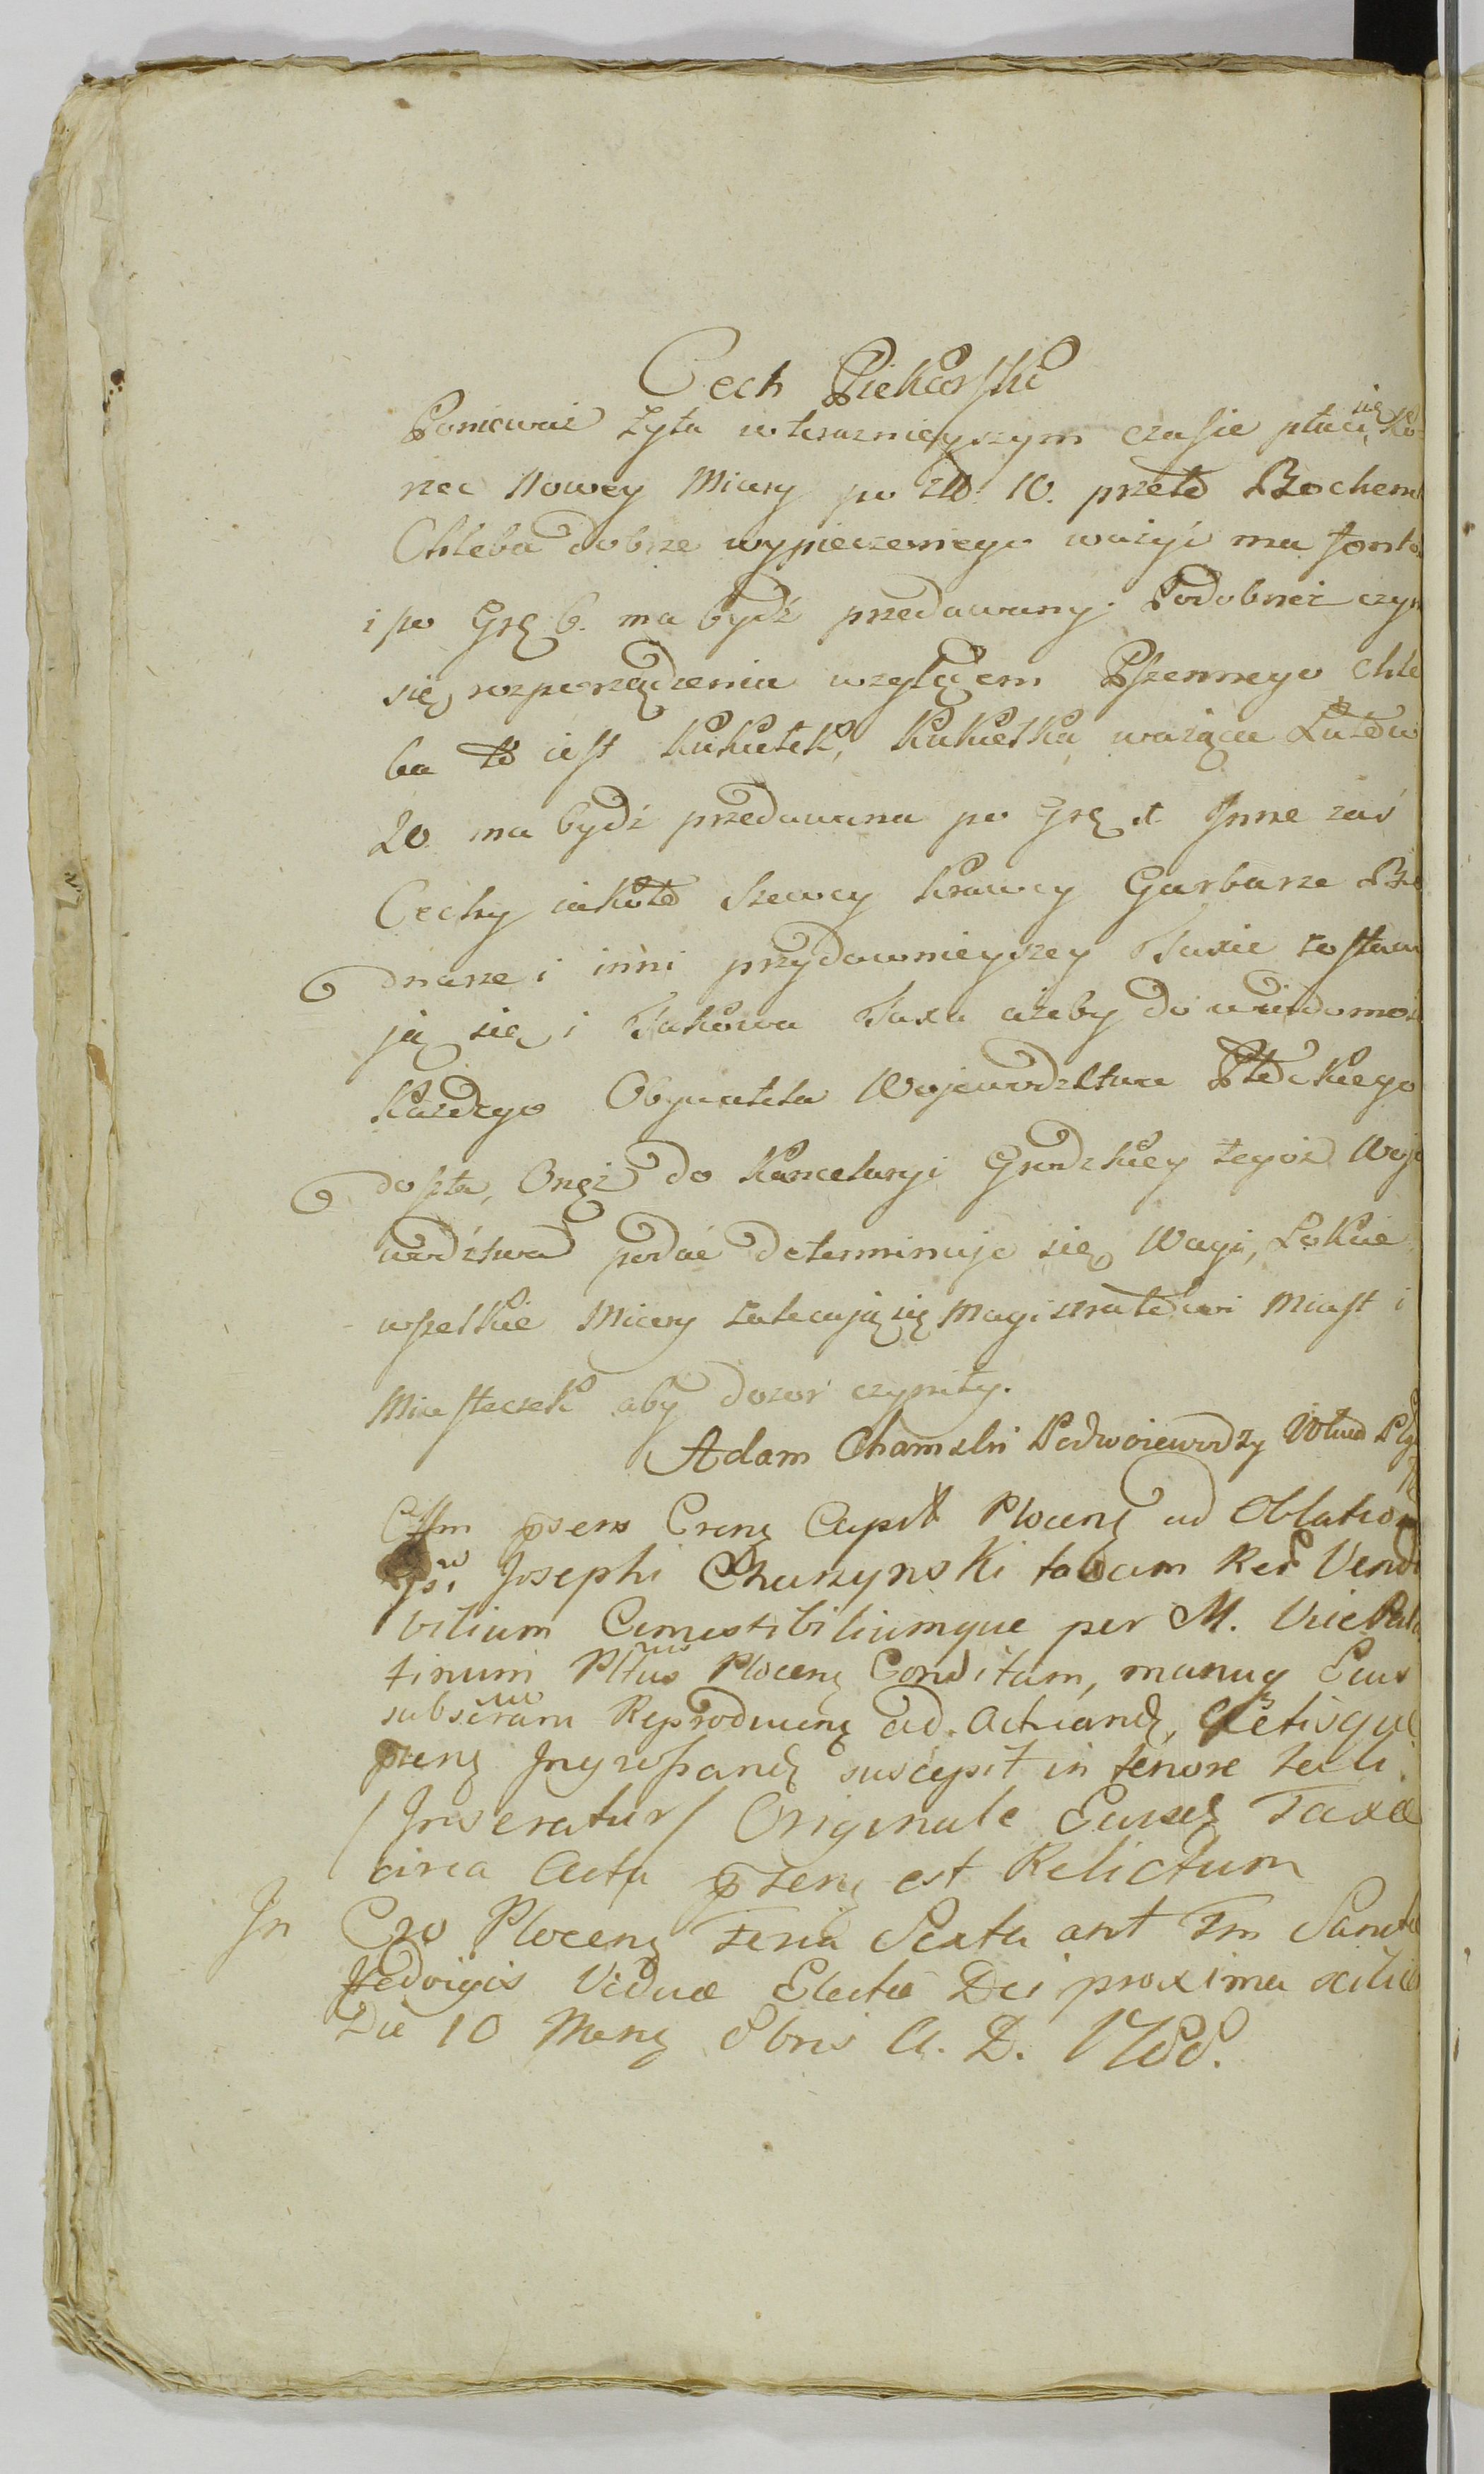 Cech Piekarski
Ponieważ żyta w teraznieyszym czasie płaci się Ko-
rzec Nowey Miary po Zło: 10. przeto Bochen
Chleba dobrze wypieczonego ważyć ma font
i po Grę 6. ma bydź przedawany. Podobnież czyn
się rozporządzenia względem Pszennego Chle
ba to iest Kukiełek, Kukiełka ważąca Łutów
20 ma bydź przedawana po Grę Inne zaś
Cechy iakoto Szewcy Krawcy Garbarze Be
dnarze i inni przy dawnieyszey Taxie zostaw
ją się i Takowa Taxa ażeby do wiadomoś
Każdego Obywatela Wojewodztwa Płockiego
doszła, Onęż do Kancelaryi Grodzkiey tegoż Woje
wodztwa podać determinuje się, Wagi, Łokcie
wszelkie Miary zalecają się Magistratowi Miast i
Miasteczek aby dozor czyniły.
Adam Chamski Podwoiewodzy Wtwa
Off̃m p̃sens Crens Capitł Plocens ad Oblation
Josephi Charzynski taxam Rer̃ Vendi
bilium Comestibiliumque per M. Vice Pala
tinum Pltũs Plocens Conditam, manuq Eius
subscr̃am Reproducens ad Acticand, Actisque
p̃sens Ingrossand suscepit in tenore tali
/Inseratur/ Originale Eiusd Taxæ
circa Acta p̃sens est Relictum
In Cro Plocens Feria Sexta ant̃ Fm Sanctæ
Hedvigis Viduæ Electæ Dei proxima scilic
Die 10 Mens 8bris A. D. 1788.